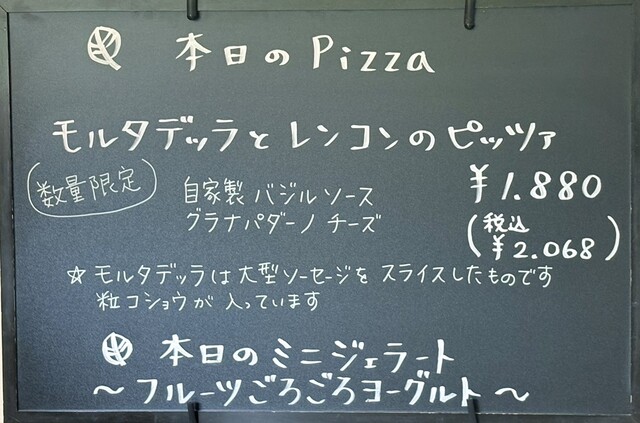 本日のPizza
モルタデッラとレンコンのピッツァ
数量限定
自家製 バジルソース
グラナパダーノ チーズ
¥1.880
(税込
¥2.068)
☆ モルタデッラは大型ソーセージを スライスしたものです
粒コショウが入っています
本日のミニジェラート
〜フルーツごろごろヨーグルト〜